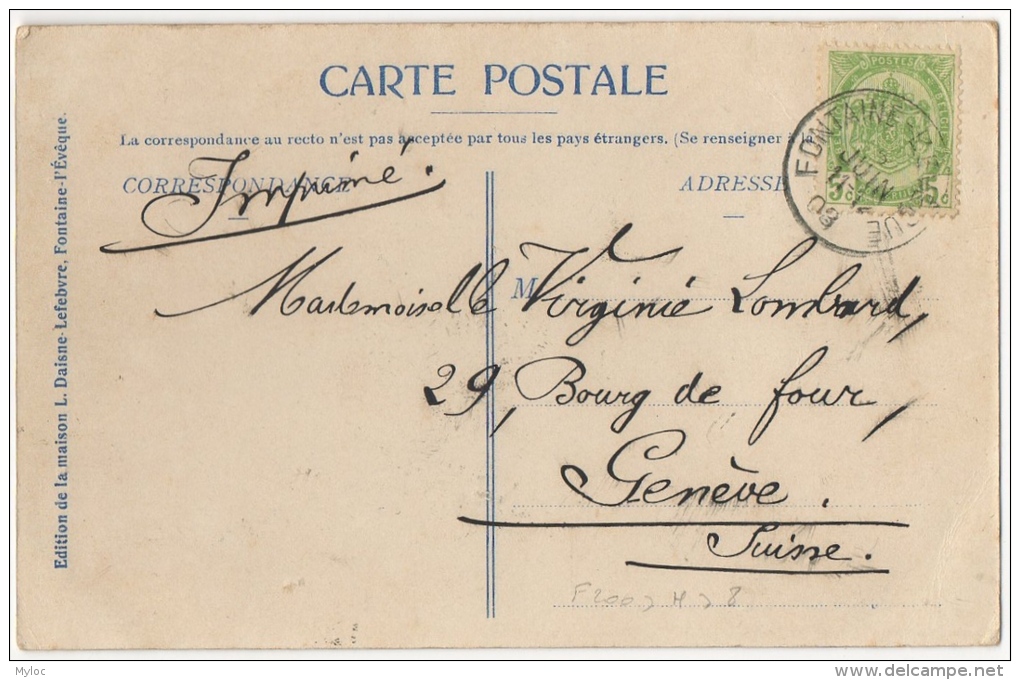 CARTE POSTALE
La correspondance au recto n'est pas acceptée par tous les pays étrangers. (Se renseigner à la
CORRESPONDANCE
ADRESSE
Imprimé.
POSTES
FONTAINE
JUIN
11-12
08
5 c 5 c
M
Mademoiselle Virginie Lombard,
29, Bourg de four,
Genève.
Suisse.
Edition de la maison L. Daisne-Lefebvre, Fontaine-l'Évêque.
Myloc
www.delcampe.net